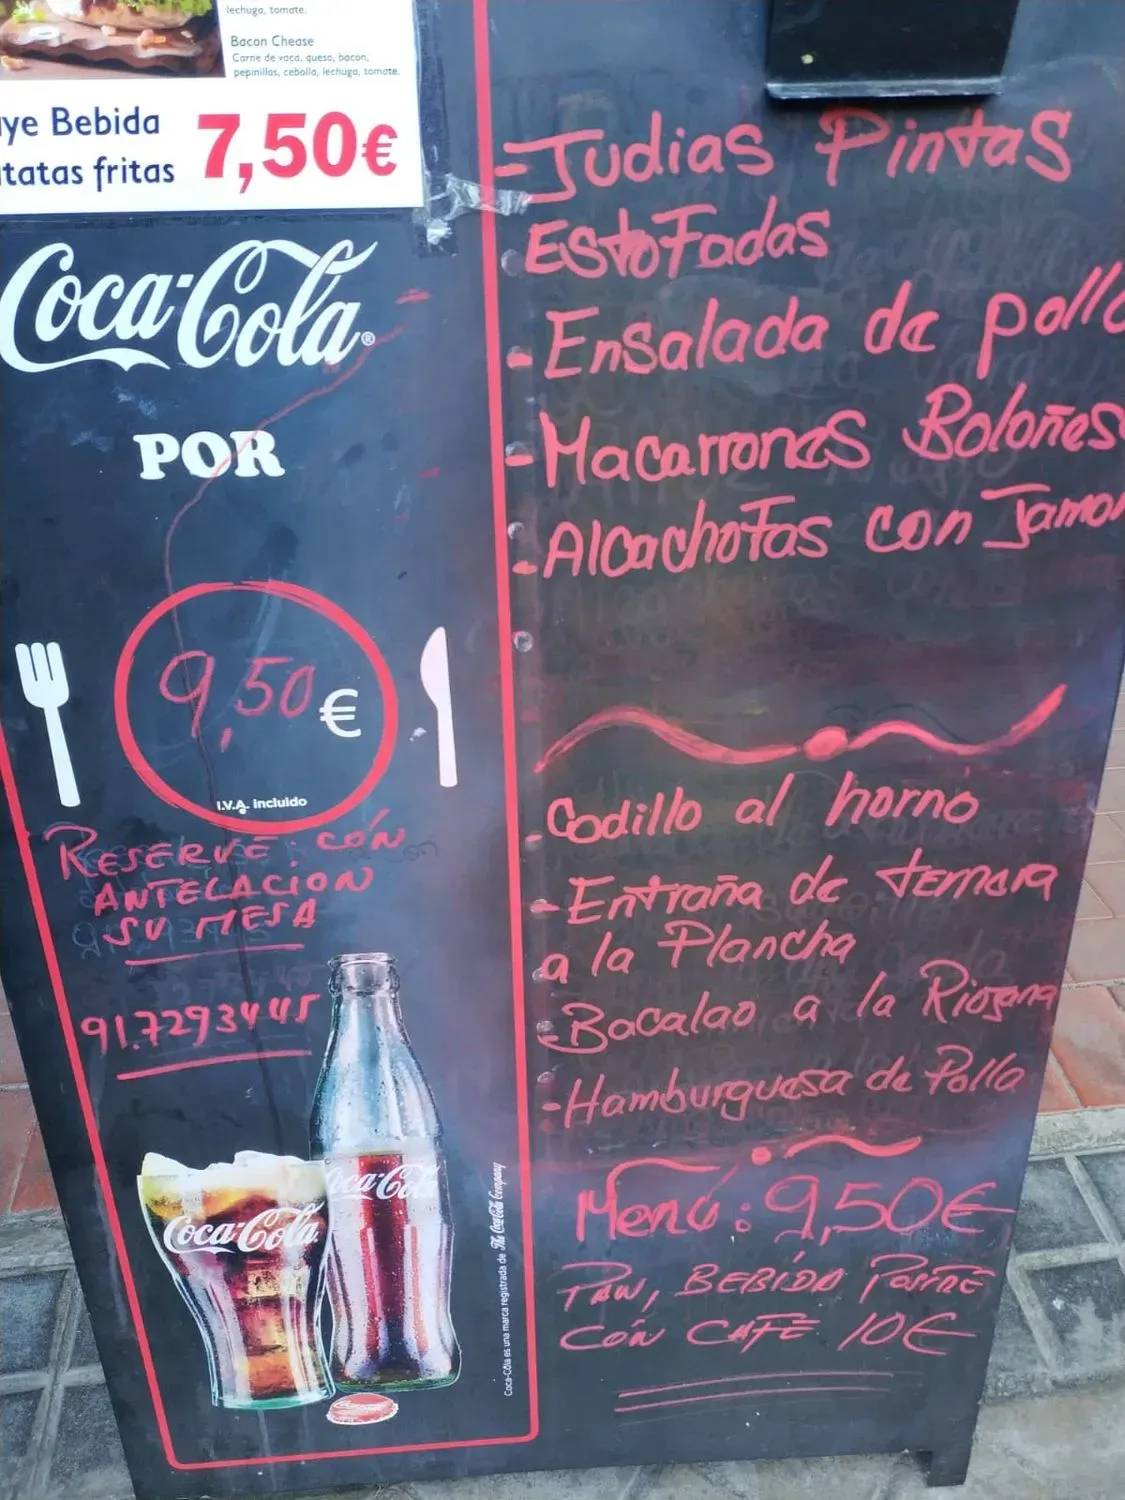 lechuga, tomate.
Bacon Chease
Carne de vaca, queso, bacon,
pepinillos, cebolla, lechuga, tomate.
ye Bebida
tatas fritas
7,50€
Coca-Cola®
POR
9,50 €
I.V.A. incluido
RESERVE: CON
ANTELACION
SU MESA
91.7293445
Coca-Cola
Coca-Cola
Coca-Cola es una marca registrada de The Coca-Cola Company
- Judias Pintas
Estofadas
- Ensalada de pollo
- Macarrones Boloñes
- Alcachofas con Jamon
- Codillo al horno
- Entraña de ternera
a la Plancha
- Bacalao a la Riojana
- Hamburguesa de Pollo
Menú: 9,50€
PAN, BEBIDA POSTRE
CON CAFE 10€